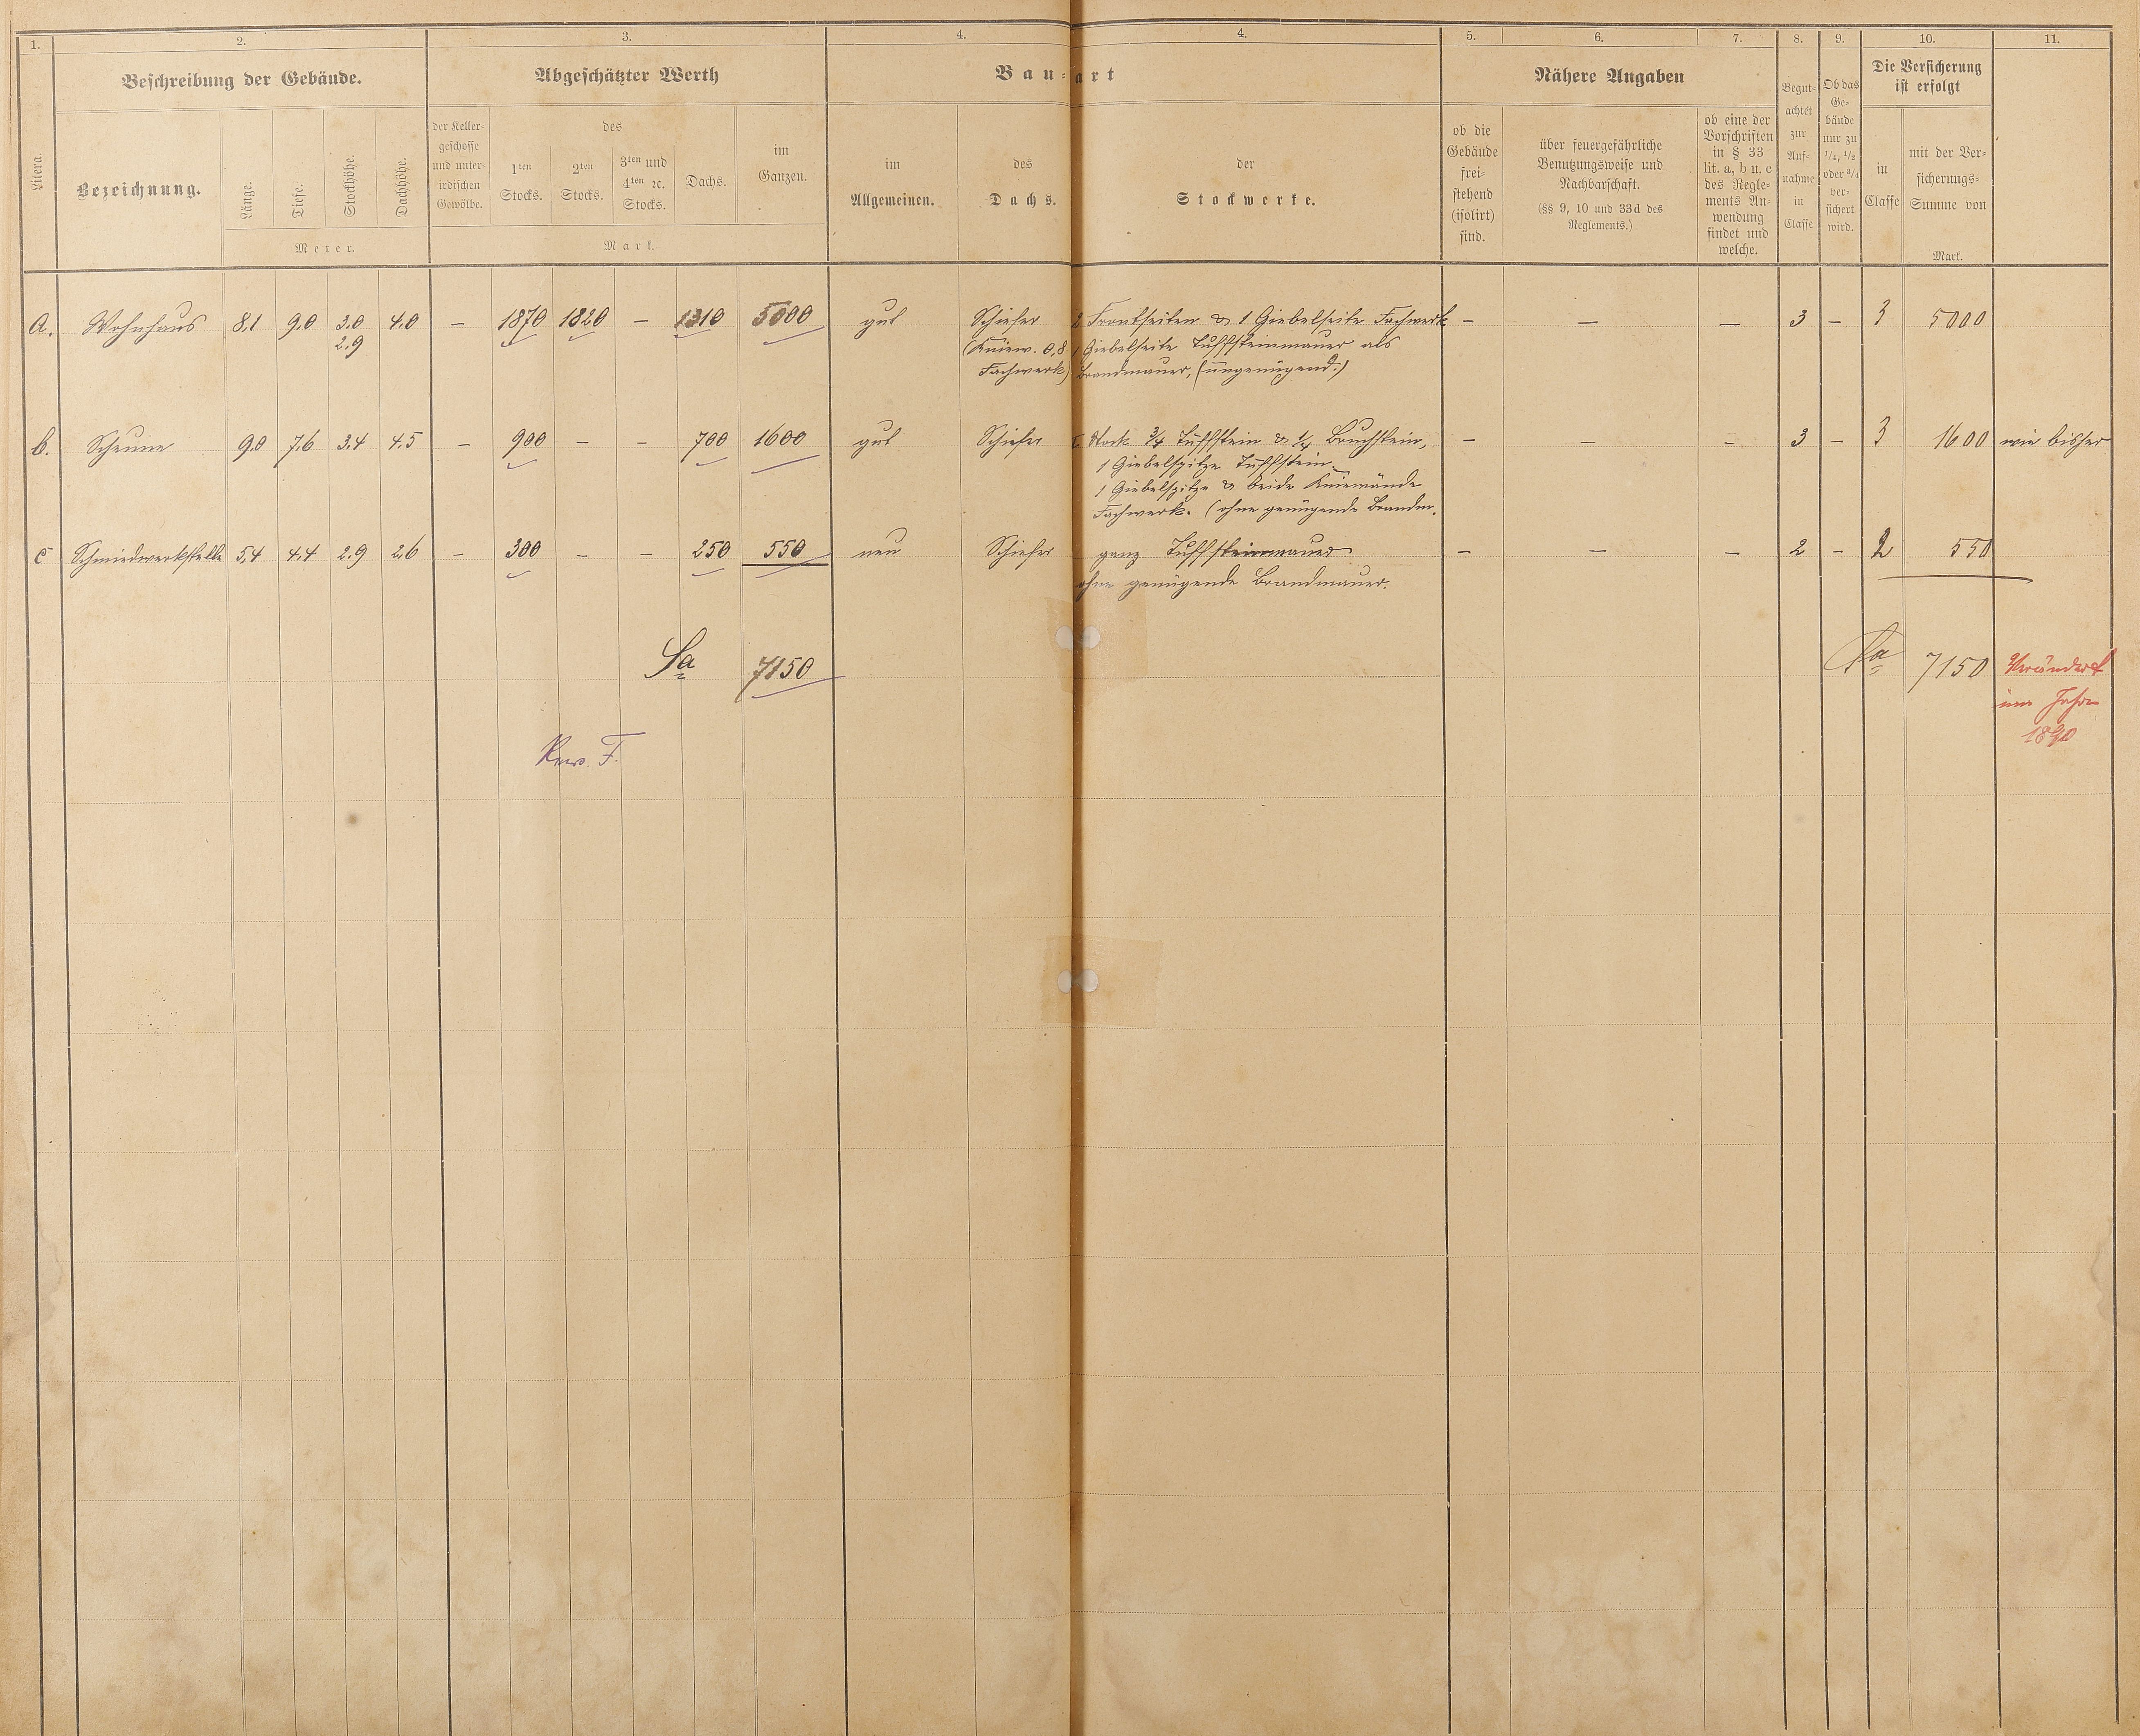 1. 2. 3. 4. 4. 5. 6. 7. 8. 9. 10. 11.
Beschreibung der Gebäude. Abgeschätzter Werth Bau-art Nähere Angaben
Die Versicherung
ist erfolgt
Litera.
Bezeichnung.
Länge.
Tiefe.
Stockhöhe.
Dachhöhe.
Meter.
der Keller-
geschosse
und unter-
irdischen
Gewölbe.
des
1ten
Stocks.
2ten
Stocks.
3ten und
4ten ꝛc.
Stocks.
Dachs.
im
Ganzen.
Mark.
im
Allgemeinen.
des
Dachs.
der
Stockwerke.
ob die
Gebäude
frei-
stehend
(isolirt)
sind.
über feuergefährliche
Benutzungsweise und
Nachbarschaft.
(§§ 9, 10 und 33d des
Reglements.)
ob eine der
Vorschriften
in § 33
lit. a, b u. c
des Regle-
ments An-
wendung
findet und
welche.
Begut-
achtet
zur
Auf-
nahme
in
Classe
Ob das
Ge-
bäude
nur zu
1/4, 1/2
oder 3/4
ver-
sichert
wird.
in
Classe
mit der Ver-
sicherungs-
Summe von
Mark.
a. Wohnhaus 8,1 9,0 3,0 4,0 – 1870 1820 – 1310 5000 gut Schiefer 2 Frontseiten & 1 Giebelseite Fachwerk – – – 3 – 3 5000
2,9 (Kniew. 0,8 1 Giebelseite Tuffsteinmauer als
Fachwerk) Brandmauer, (ungenügend.)
b. Scheune 9,0 7,6 3,4 4,5 – 900 – – 700 1600 gut Schiefer I. Stock 3/4 Tuffstein & 1/4 Bruchstein, – – – 3 – 3 1600 wie bisher
1 Giebelspitze Tuffstein
1 Giebelspitze & beide Kniewände
Fachwerk. (ohne genügende Brandm.
c Schmiedwerkstelle 5,4 4,4 2,9 2,6 – 300 – – 250 550 neu Schiefer ganz Tuffsteinmauer – – – 2 – 2 550
ohne genügende Brandmauer.
Sa 7150 Sa 7150 Verändert
im Jahre
1890